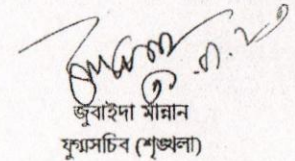 জুবাইদা মান্নান
যুগ্মসচিব (শৃঙ্খলা)